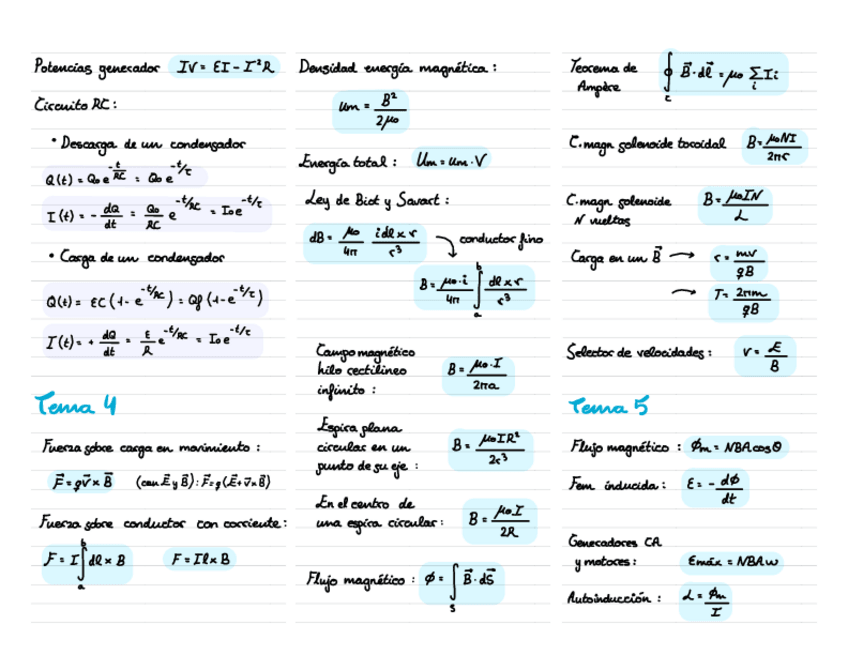 Potencias generador IV = εI - I²R
Circuito RC:
• Descarga de un condensador
Q(t) = Q₀ e^(-t/RC) = Q₀ e^(-t/τ)
I(t) = - dQ/dt = Q₀/RC e^(-t/RC) = I₀ e^(-t/τ)
• Carga de un condensador
Q(t) = εC (1 - e^(-t/RC)) = Qf (1 - e^(-t/τ))
I(t) = + dQ/dt = ε/R e^(-t/RC) = I₀ e^(-t/τ)
Tema 4
Fuerza sobre carga en movimiento:
F⃗ = q v⃗ × B⃗ (con E⃗ y B⃗): F⃗ = q(E⃗ + v⃗ × B⃗)
Fuerza sobre conductor con corriente:
F = I ∫ₐᵇ dl × B F = Il × B
Densidad energía magnética:
um = B²/2μ₀
Energía total: Um = um · V
Ley de Biot y Savart:
dB = μ₀/4π idl × r/r³ conductor fino
B = μ₀ · i/4π ∫ₐᵇ dl × r/r³
Campo magnético
hilo rectilíneo
infinito: B = μ₀ · I/2πa
Espira plana
circular en un
punto de su eje: B = μ₀IR²/2r³
En el centro de
una espira circular: B = μ₀I/2R
Flujo magnético: ϕ = ∫_S B⃗ · dS⃗
Teorema de
Ampère ∮_c B⃗ · dl⃗ = μ₀ Σ_i Ii
C. magn solenoide toroidal B = μ₀NI/2πr
C. magn solenoide
N vueltas B = μ₀IN/L
Carga en un B⃗ → r = mv/qB
→ T = 2πm/qB
Selector de velocidades: v = E/B
Tema 5
Flujo magnético: ϕm = NBA cos θ
Fem inducida: ε = - dϕ/dt
Generadores CA
y motores: εmáx = NBAω
Autoinducción: L = ϕm/I